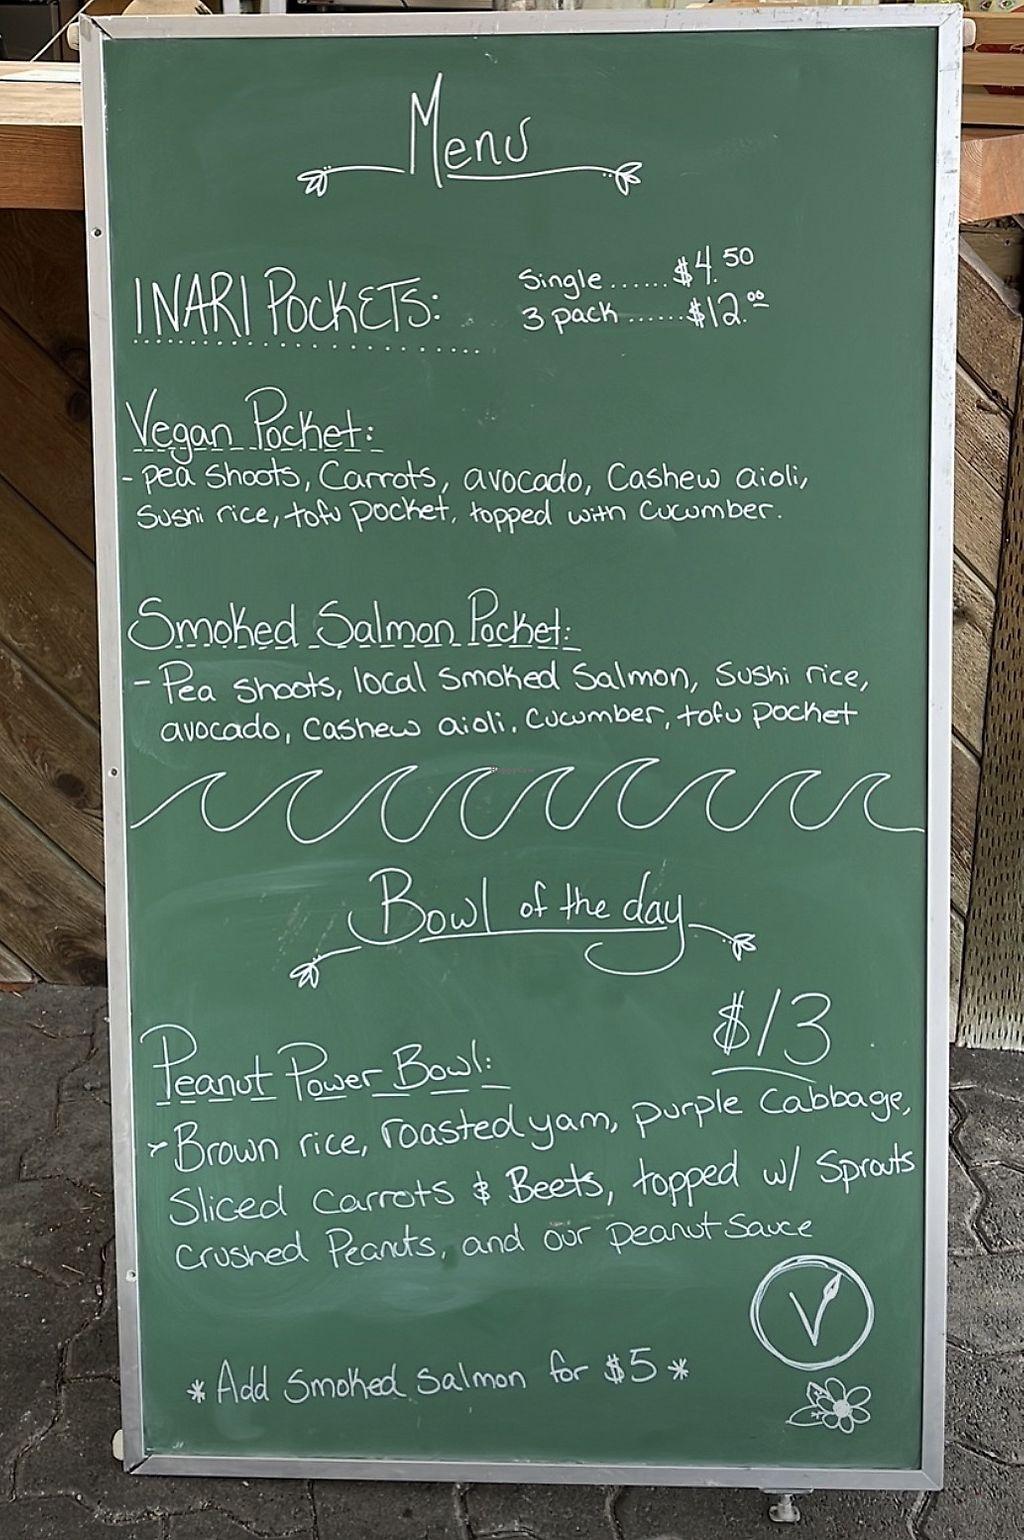 Menu
INARI POCKETS:
Single ...... $4.50
3 pack ...... $12.00
Vegan Pocket:
- pea shoots, Carrots, avocado, Cashew aioli,
Sushi rice, tofu pocket, topped with cucumber.
Smoked Salmon Pocket:
- Pea shoots, local smoked salmon, sushi rice,
avocado, cashew aioli, cucumber, tofu pocket
HappyCow
Bowl of the day
$13
Peanut Power Bowl:
Brown rice, roasted yam, purple cabbage,
Sliced carrots & Beets, topped w/ Sprouts
crushed Peanuts, and our peanut sauce
V
* Add smoked salmon for $5 *